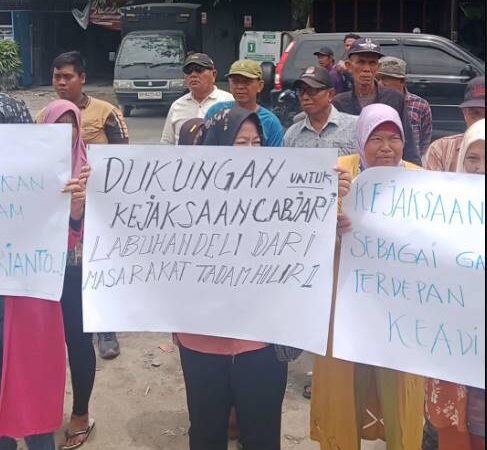 KAN
AM
RIANTO..!
DUKUNGAN UNTUK
KEJAKSAAN CABJARI
LABUHAN DELI DARI
MASARAKAT TADAM HULIR I
KEJAKSAAN
SEBAGAI GA
TERDEPAN
KEADI